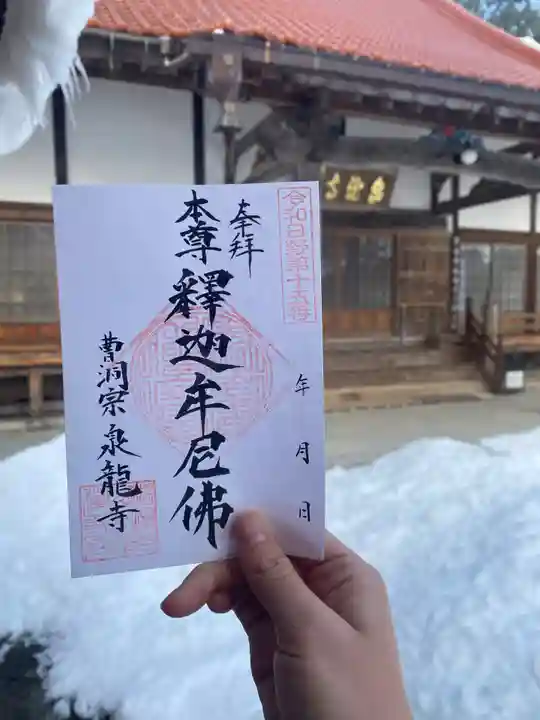 令和日野第十五番
奉拝
本尊 釋迦牟尼佛
曹洞宗 泉龍寺
年 月 日